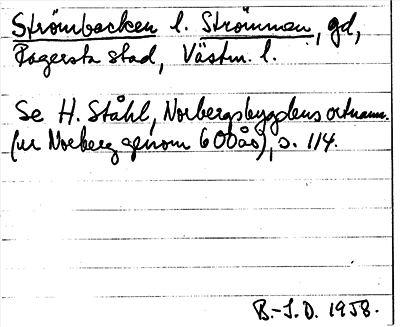 Strömbacken l. Strömmen, gd,
Fagersta stad, Västm. l.
Se H. Ståhl, Norbergsbygdens ortnamn.
(ur Norberg genom 600 år), s. 114.
B.-I.D. 1958.